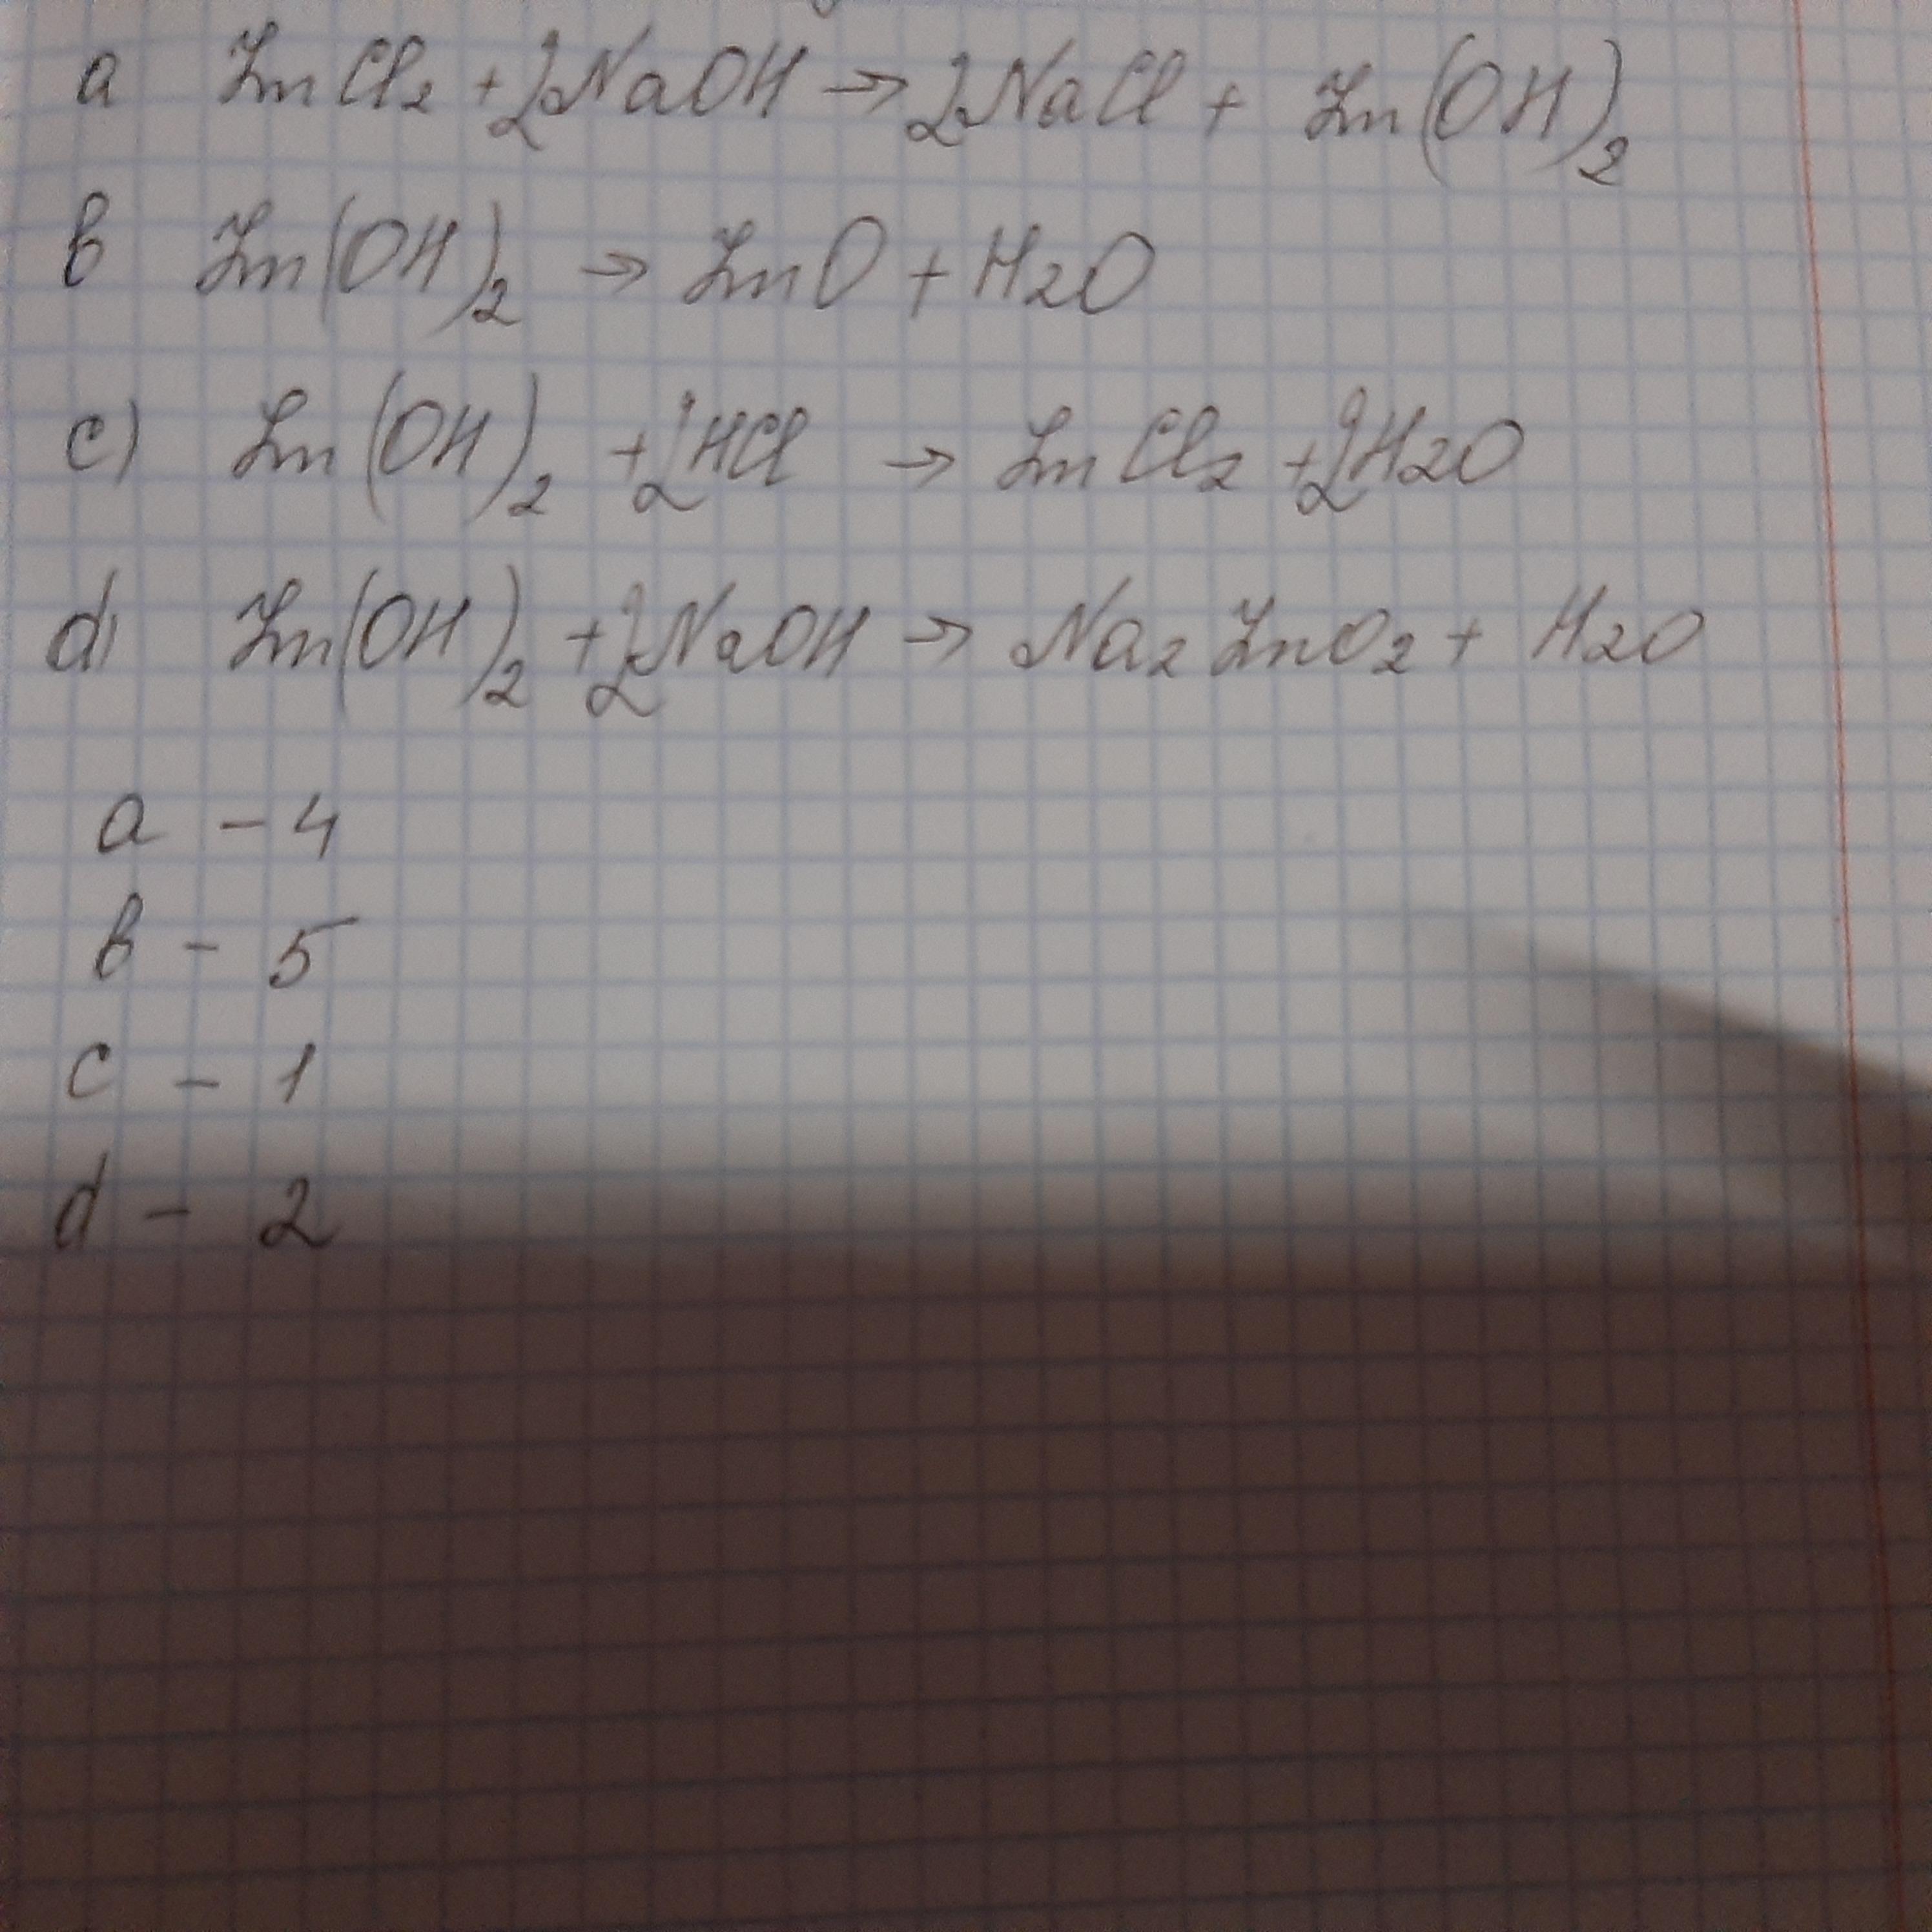 a ZnCl2 + 2NaOH → 2NaCl + Zn(OH)2
b Zn(OH)2 → ZnO + H2O
c) Zn(OH)2 + 2HCl → ZnCl2 + 2H2O
d) Zn(OH)2 + 2NaOH → Na2ZnO2 + H2O
a - 4
b - 5
c - 1
d - 2